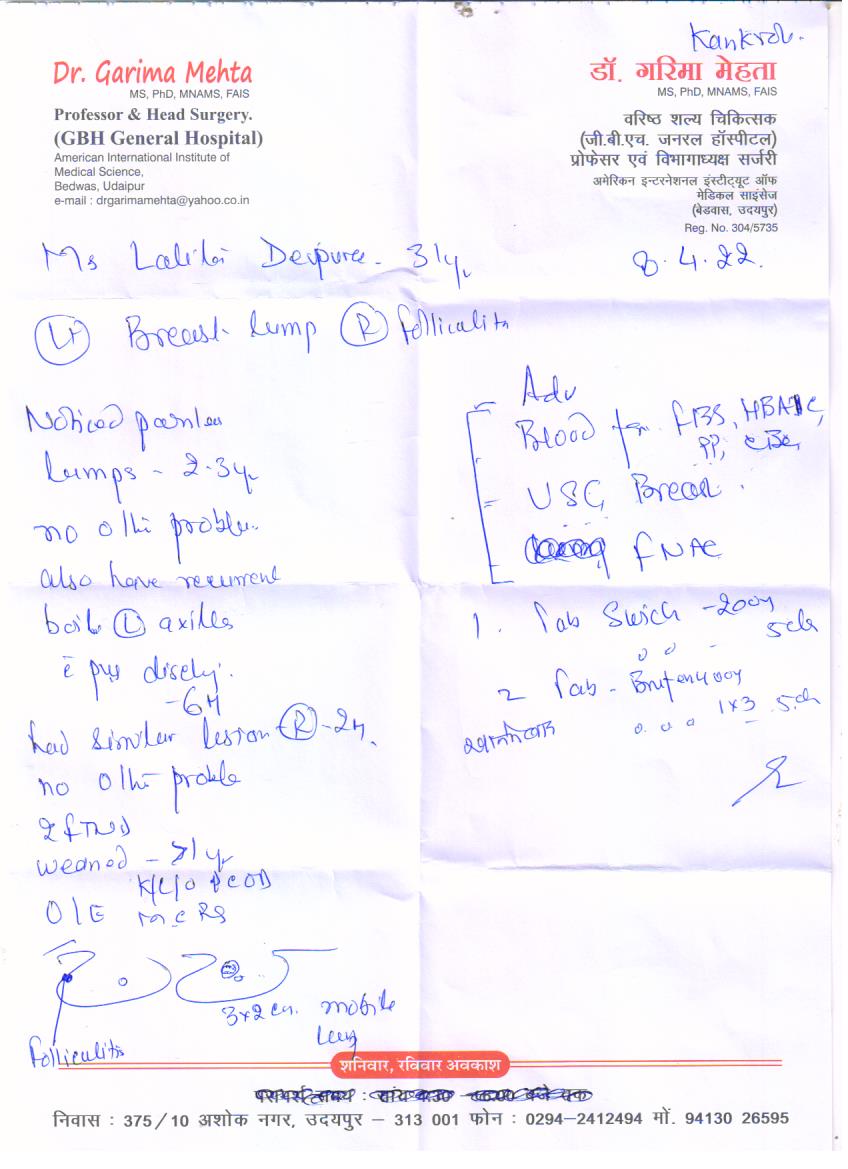 Kankroli
Dr. Garima Mehta
MS, PhD, MNAMS, FAIS
Professor & Head Surgery.
(GBH General Hospital)
American International Institute of
Medical Science,
Bedwas, Udaipur
e-mail : drgarimamehta@yahoo.co.in
डॉ. गरिमा मेहता
MS, PhD, MNAMS, FAIS
वरिष्ठ शल्य चिकित्सक
(जी.बी.एच. जनरल हॉस्पीटल)
प्रोफेसर एवं विभागाध्यक्ष सर्जरी
अमेरिकन इन्टरनेशनल इंस्टीट्यूट ऑफ
मेडिकल साइंसेज
(बेडवास, उदयपुर)
Reg. No. 304/5735
Ms 31y.
8.4.22.
Lt Breast lump R folliculitis
Noticed painless
lumps - 2-3yr
no other problem.
also have recurrent
boils L axilla
c pus
- 6M
had similar lesion R - 2y.
no other problem
2 FTND
weaned - >1yr
K/C/O PCOD
O/E
3x2 cm. mobile
lump
folliculitis
Adv
Blood for FBS, HBA1C,
PP, CBC
USG Breast.
FNAC
1. Tab Swich - 200
5d
2 Tab - Brufen 400
1x3 5d
शनिवार, रविवार अवकाश
निवास : 375/10 अशोक नगर, उदयपुर – 313 001 फोन : 0294–2412494 मों. 94130 26595